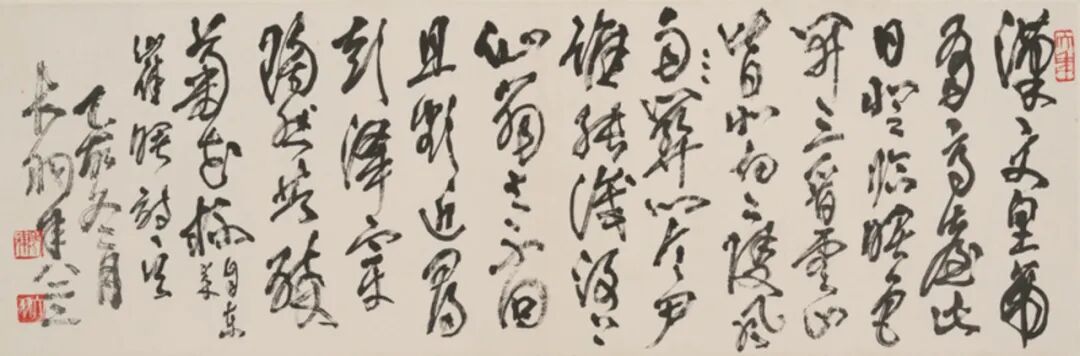 漢文皇帝
有高臺此
日登臨曙色
開三晋雲山
皆北向二陵風
雨關門令尹
誰能識河上
仙翁去不回
且欲近尋
彭澤宰
陶然共醉
菊花杯 自東来
崔曙詩
乙酉冬月
年八三